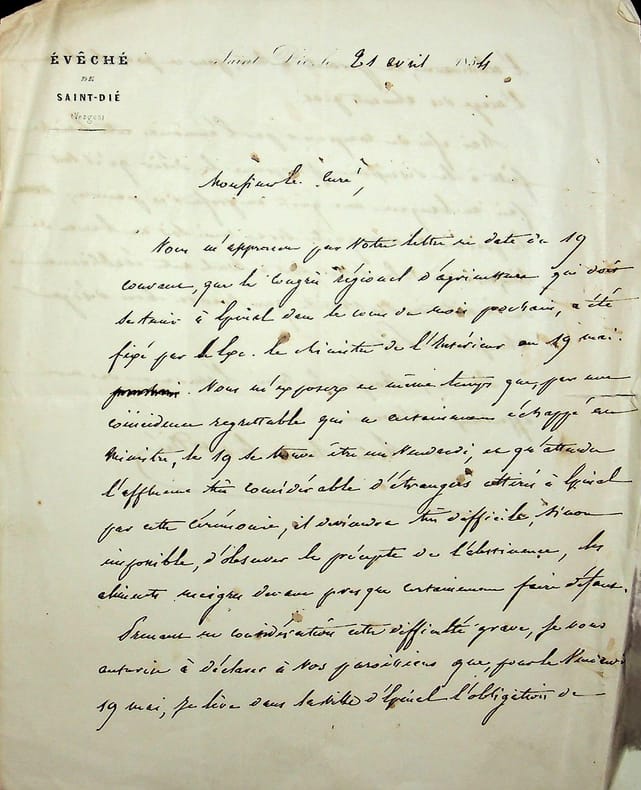 ÉVÊCHÉ
DE
SAINT-DIÉ
(Vosges)
Saint Dié, le 21 avril 1854
Monsieur le Curé,
Vous m'apprenez par votre lettre en date du 19
courant, que le congrès régional d'agriculture qui doit
se tenir à Epinal dans le cours du mois prochain, a été
fixé par le Ministre de l'Intérieur au 19 mai.
prochain. Vous m'exposez en même temps que, par une
coïncidence regrettable qui a certainement échappé au
Ministre, le 19 se trouve être un Vendredi, et qu'attendu
l'affluence très considérable d'étrangers attirés à Epinal
par cette cérémonie, il deviendra très difficile, sinon
impossible, d'observer le précepte de l'abstinence, les
aliments maigres devant presque certainement faire défaut.
Prenant en considération cette difficulté grave, je vous
autorise à déclarer à vos paroissiens que, pour le Vendredi
19 mai, je lève dans la ville d'Epinal l'obligation de